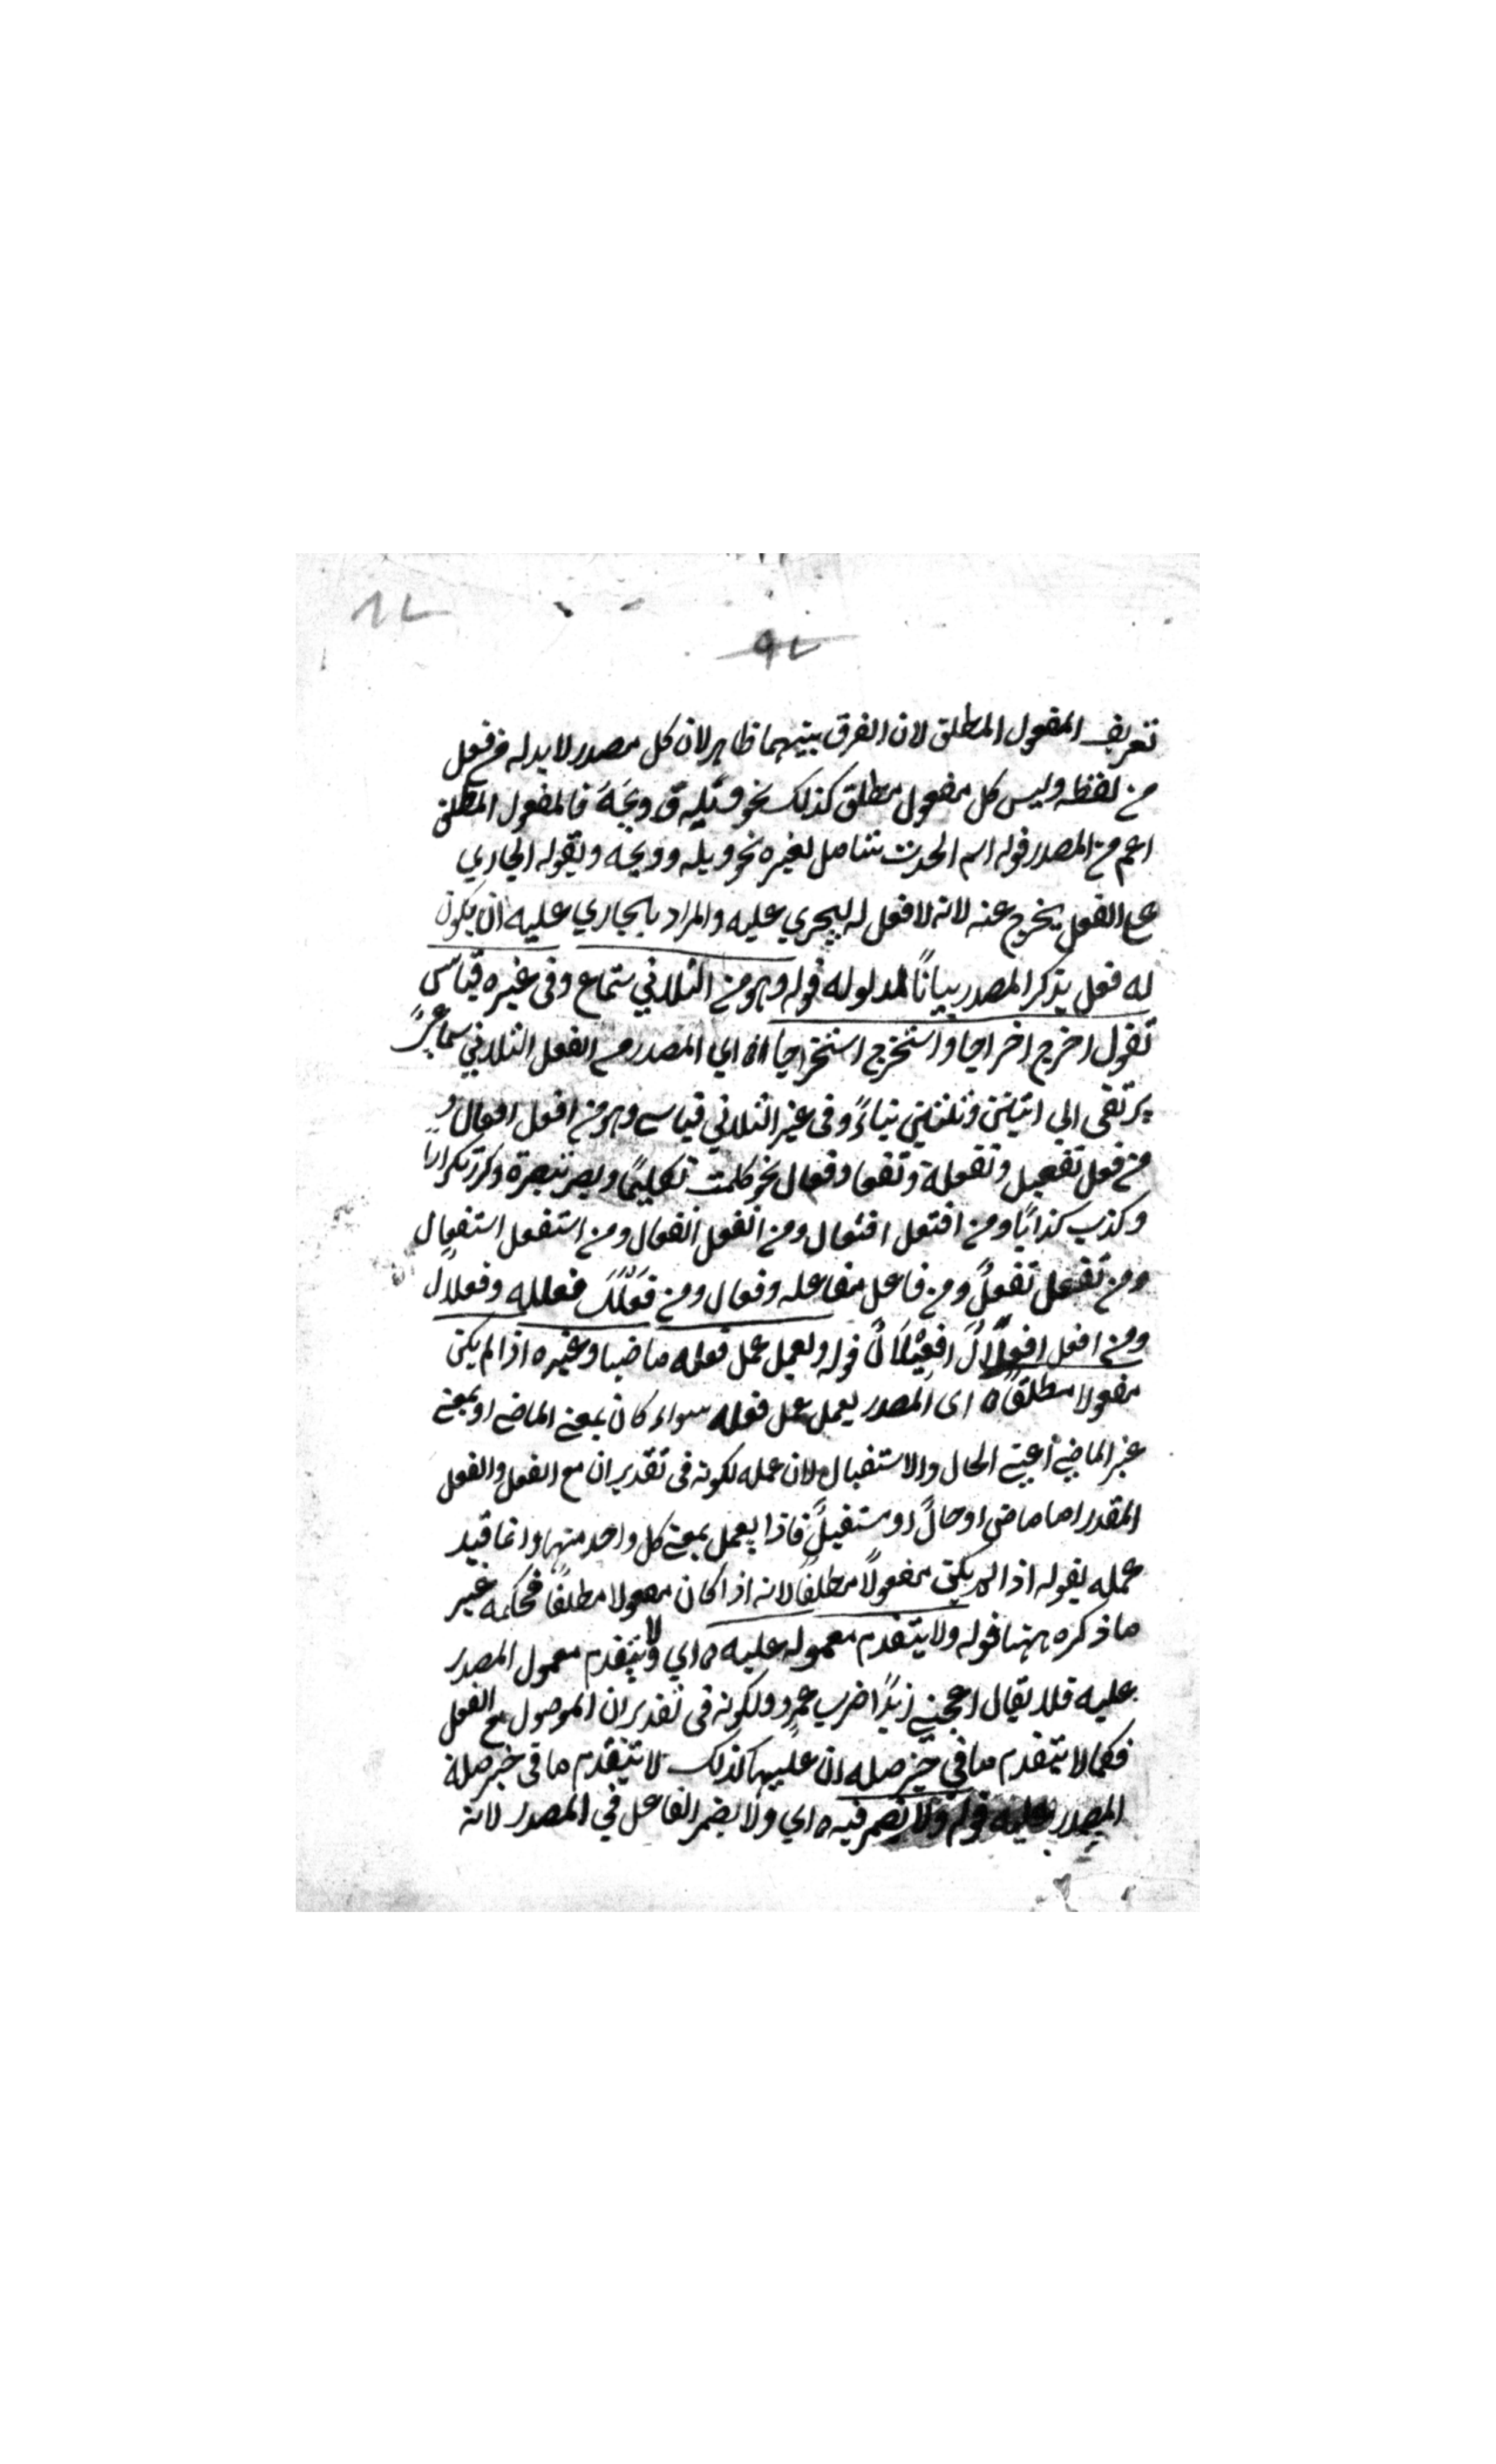 تعريف المفعول المطلق لان الفرق بينهما ظاهر لان كل مصدر لا بد له من فعل
من لفظه وليس كل مفعول مطلق كذلك نحو ويله وويحه فالمفعول المطلق
اعم من المصدر قوله اسم الحدث تتنامل لغيره نحو ويله وويحه وبقوله الجاري
على الفعل يخرج عنه لانه لا فعل له ليجري عليه والمراد بالجاري عليه ان يكون
له فعل يذكر المصدر بيانًا لمدلوله قوله وهو من الثلاثي سماع وفي غيره قياس
تقول اخرج اخراجا واستخرج استخراجا اه اي المصدر من الفعل الثلاثي سماعيّ
يرتقى الى اثنين وثلثين بناءً وفى غير الثلاثي قياسي وهو من افعل افعال و
من فعل تفعيل وتفعلة وتفعا وفعال نحو كلمت تكليمًا وبصر تبصرة وكرر تكرارًا
وكذب كذابًا ومن افتعل افتعال ومن انفعل انفعال ومن استفعل استفعال
ومن تفعل تفعلً ومن فاعل مفاعله وفعال ومن فعلل فعلله وفعلال
ومن افعل افعلال افعيلال قوله ويعمل عمل فعله ماضيا وغيره اذا لم يكن
مفعولا مطلقًا ه اى المصدر يعمل عمل فعله سواء كان بمعنى الماضي او بمعنى
غير الماضي اعني الحال والاستقبال لان عمله لكونه فى تقدير ان مع الفعل والفعل
المقدر اما ماضي او حالً او مستقبلً فاذا يعمل بمعنى كل واحد منها وانما قيد
عمله بقوله اذا لم يكن مفعولاً مطلقًا لانه اذا كان مفعولا مطلقًا فحكمه غير
ما ذكره ههنا قوله ولا يتقدم معموله عليه ه اي لا يتقدم معمول المصدر
عليه فلا يقال اعجبني زيدًا ضرب عمرو ولكونه فى تقدير ان الموصول مع الفعل
فكما لا يتقدم ما في حيز صله ان عليها كذلك لا يتقدم ما فى خبر صلة
المصدر عليه قوله ولا يضمر فيه ه اي ولا يضمر الفاعل في المصدر لانه